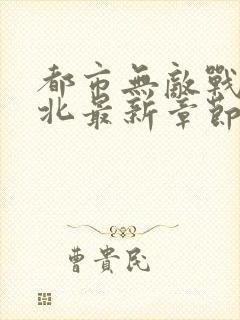 都市無敵戰
北最新章節
曹貴民